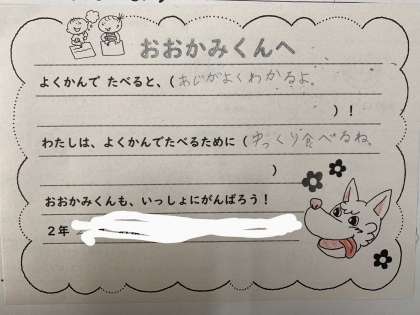 おおかみくんへ
よくかんで たべると、(あじがよくわかるよ。
)！
わたしは、よくかんでたべるために(ゆっくり食べるね。
)
おおかみくんも、いっしょにがんばろう！
２年